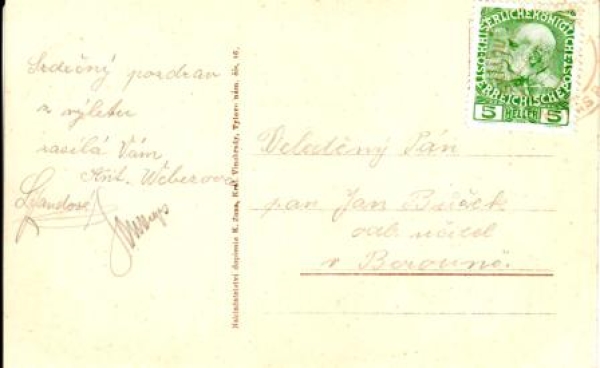 Srdečný pozdrav
z výletu
zasílá Vám
Ant. Weberova
Nakladatelství dopisnic K. Jansa, Král. Vinohrady, Tylovo nám. čís. 16.
KAISERLICHE KÖNIGLICHE
ÖSTERREICHISCHE POST
5 HELLER 5
Veleděný Pán
pan Jan
odb. učitel
v Berouně.